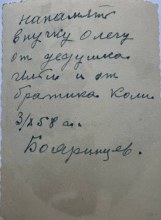 на память
внучку Олегу
от дедушка
и от
братика Коли.
3/I 58 г.
Бояринцев.